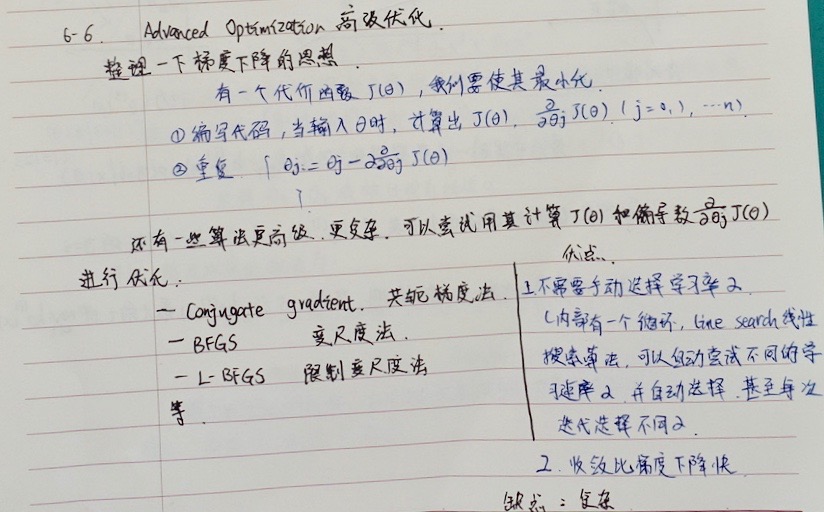 6-6. Advanced Optimization 高级优化.
整理一下梯度下降的思想.
有一个代价函数 J(θ), 我们要使其最小化.
① 编写代码, 当输入θ时, 计算出 J(θ), ∂/∂θj J(θ) (j=0,1, …n)
② 重复 { θj := θj - α ∂/∂θj J(θ)
}
还有一些算法更高级、更复杂, 可以尝试用其计算 J(θ) 和偏导数 ∂/∂θj J(θ)
进行优化:
— Conjugate gradient. 共轭梯度法.
— BFGS 变尺度法.
— L-BFGS 限制变尺度法
等.
优点.
1.不需要手动选择学习率α
(内部有一个循环, line search 线性
搜索算法, 可以自动尝试不同的学
习速率α, 并自动选择, 甚至每次
迭代选择不同α.
2. 收敛比梯度下降快
缺点: 复杂